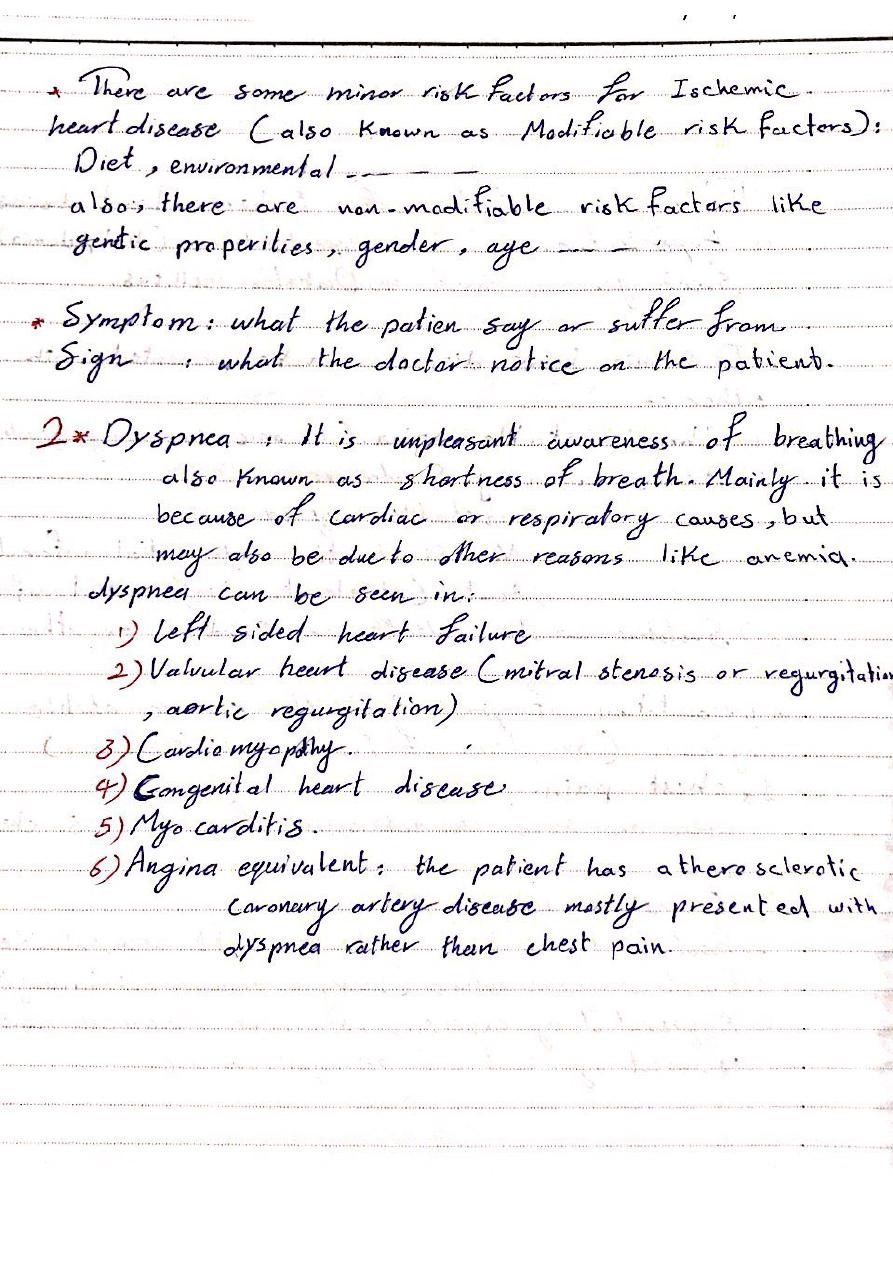 * There are some minor risk factors for Ischemic
heart disease (also known as Modifiable risk factors):
Diet, environmental - - - -
also, there are non-modifiable risk factors like
gentic properities, gender, age - - -
* Symptom: what the patien say or suffer from
Sign : what the doctor notice on the patient.
2* Dyspnea : It is unpleasant awareness of breathing
also known as shortness of breath. Mainly it is
because of cardiac or respiratory causes, but
may also be due to other reasons like anemia.
dyspnea can be seen in:
1) left sided heart failure
2) Valvular heart disease (mitral stenosis or regurgitation
, aortic regurgitation)
3) Cardiomyopthy.
4) Congenital heart disease
5) Myocarditis.
6) Angina equivalent: the patient has atherosclerotic
coronary artery disease mostly presented with
dyspnea rather than chest pain.